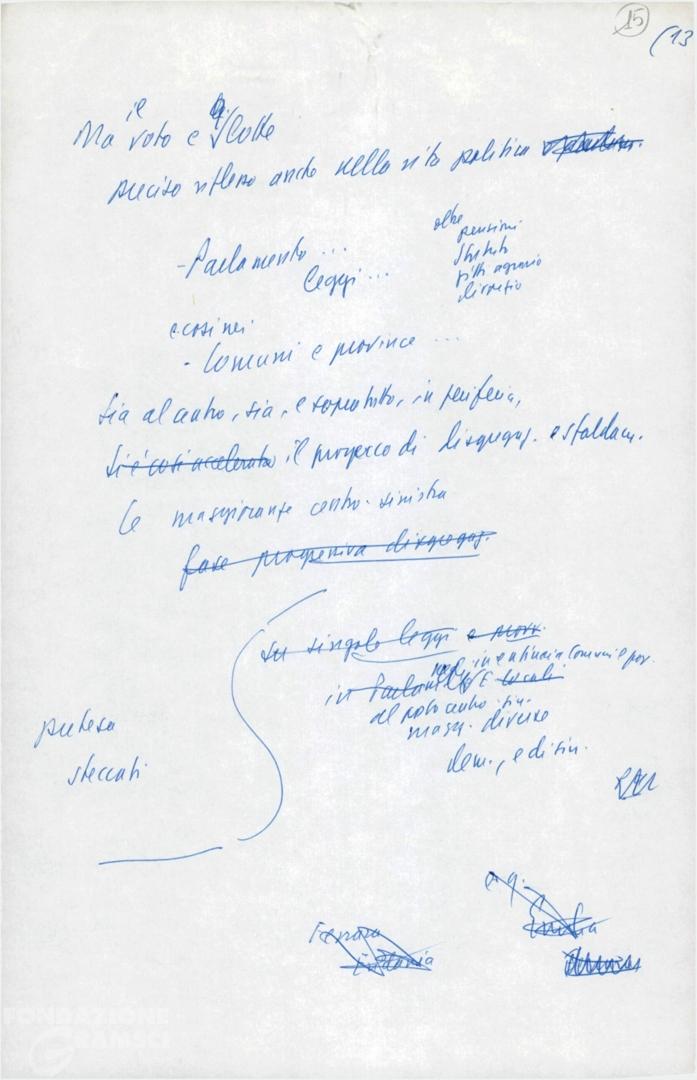 15
(13
Ma il voto e q. lotte
preciso riflesso anche nella vita politica
- Parlamento ...
Leggi ...
oltre
pensioni
Statuto
fitti agrario
divorzio
e così nei
- Comuni e province ...
sia al centro, sia, e soprattutto, in periferia,
si è così accelerato il processo di disgregaz. e sfaldam.
le maggioranze centro-sinistra
fase progressiva disgregaz.
su singole leggi e provv.
in centinaia Comuni e prov.
in Parlam. E locali
al posto centro-sin.
magg. diverse
dem., e di sin.
pretesa
steccati
Emilia
FONDAZIONE
GRAMSCI